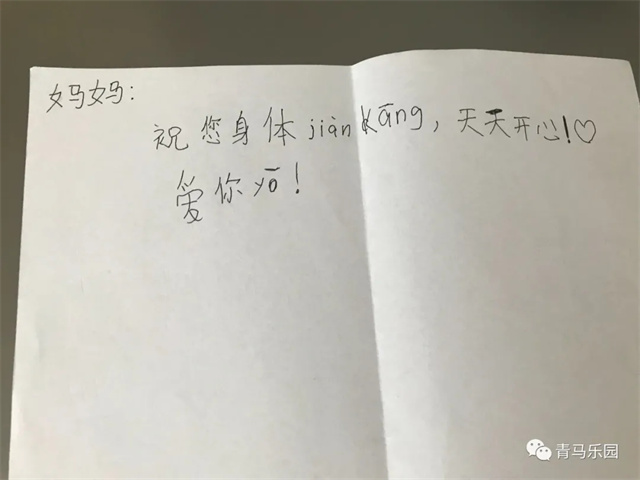 妈妈：
祝您身体jiàn kāng，天天开心！♡
爱你yō！
青马乐园